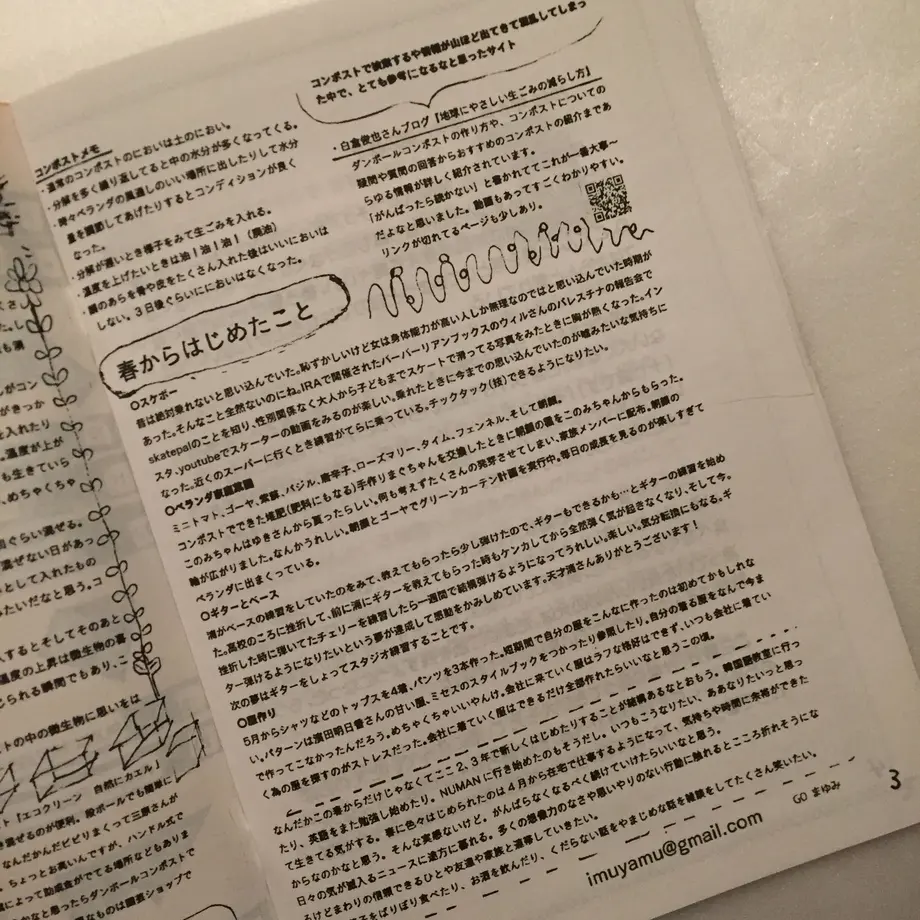 さ
た。し
も湧
がコン
がきっか
を入れたり
温度が上が
も生きていら
、めちゃくちゃ
回ぐらい混ぜる。
混ぜない日があっ
として入れたもの
みたいだなと思う。コ
入するとそしてそのあと
温度の上昇は微生物の喜
じられる瞬間でもあり、こ
ストの中の微生物に思いをは
ト「エコクリーン 自然にカエル」
混ぜるのが便利。段ボールでも簡単に
なんだかんだビビりまくって三原さんが
。ちょっとお高いんですが、ハンドル式で
によって助成金がでる場所などもありま
かなと思ったらダンボールコンポストで
コンポストメモ
・通常のコンポストのにおいは土のにおい。
・分解を多く繰り返してると中の水分が多くなってくる。
・時々ベランダの風通しのいい場所に出したりして水分
量を調節してあげたりするとコンディションが良く
なった。
・分解が遅いとき様子をみて生ごみを入れる。
・温度を上げたいときは油!油!油!(廃油)
・魚のあらを骨や皮をたくさん入れた後はいいにおいは
しない。3日後ぐらいににおいはなくなった。
コンポストで検索するや情報が山ほど出てきて混乱してしまっ
た中で、とても参考になるなと思ったサイト
・白倉俊也さんブログ『地球にやさしい生ごみの減らし方』
ダンボールコンポストの作り方や、コンポストについての
疑問や質問の回答からおすすめのコンポストの紹介まであ
らゆる情報が詳しく紹介されています。
「がんばったら続かない」と書かれててこれが一番大事〜
だよなと思いました。動画もあってすごくわかりやすい。
リンクが切れてるページも少しあり。
春からはじめたこと
○スケボー
昔は絶対乗れないと思い込んでいた。恥ずかしいけど女は身体能力が高い人しか無理なのではと思い込んでいた時期が
あった。そんなこと全然ないのにね。IRAで開催されたバーバーリアンブックスのウィルさんのパレスチナの報告会で
skatepalのことを知り、性別関係なく大人から子どもまでスケートで滑ってる写真をみたときに胸が熱くなった。イン
スタ、youtubeでスケーターの動画をみるのが楽しい。乗れたときに今までの思い込んでいたのが嘘みたいな気持ちに
なった。近くのスーパーに行くとき練習がてらに乗っている。チックタック(技)できるようになりたい。
○ベランダ家庭菜園
ミニトマト、ゴーヤ、紫蘇、バジル、唐辛子、ローズマリー、タイム、フェンネル、そして朝顔。
コンポストでできた堆肥(肥料にもなる)手作りまぐちゃんを交換したときに朝顔の種をこのみちゃんからもらった。
このみちゃんはゆきさんから貰ったらしい。何も考えずたくさんの発芽させてしまい、斎族メンバーに配布。朝顔の
輪が広がりました。なんかうれしい。朝顔とゴーヤでグリーンカーテン計画を実行中。毎日の成長を見るのが楽しすぎて
ベランダに出まくっている。
○ギターとベース
湧がベースの練習をしていたのをみて、教えてもらったら少し弾けたので、ギターもできるかも…とギターの練習を始め
た。高校のころに挫折して、前に湧にギターを教えてもらった時もケンカしてから全然弾く気が起きなくなり、そして今。
挫折した時に弾いてたチェリーを練習したら一週間で結構弾けるようになってうれしい。楽しい。気分転換にもなる。ギ
ター弾けるようになりたいという夢が達成して感動をかみしめています。天才湧さんありがとうございます!
次の夢はギターをしょってスタジオ練習することです。
○服作り
5月からシャツなどのトップスを4着、パンツを3本作った。短期間で自分の服をこんなに作ったのは初めてかもしれな
い。パターンは濱田明日香さんの甘い服、ミセスのスタイルブックをつかったり参照したり。自分の着る服をなんで今ま
で作ってこなかったんだろう。めちゃくちゃいいやんけ。会社に来ていく服はラフな格好はできず、いつも会社に着てい
く為の服を探すのがストレスだった。会社に着ていく服はできるだけ全部作れたらいいなと思うこの頃。
なんだかこの春からだけじゃなくてここ2、3年で新しくはじめたりすることが結構あるなとおもう。韓国語教室に行っ
たり、英語をまた勉強し始めたり。NUMANに行き始めたのもそうだし。いつもこうなりたい、ああなりたいっと思っ
て生きてる気がする。春に色々はじめられたのは4月から在宅で仕事するようになって、気持ちや時間に余裕ができた
からなのかなと思う。そんな実感ないけど。がんばらなくなるべく続けていけたらいいなと思う。
日々の気が滅入るニュースに途方に暮れる。多くの想像力のなさや思いやりのない行動に触れるとこころ折れそうにな
るけどまわりの信頼できるひとや友達や家族と連帯していきたい。
子をぱりぽり食べたり、お酒を飲んだり、くだらない話をやまじめな話を雑談をしてたくさん笑いたい。
GO まゆみ
imuyamu@gmail.com
3